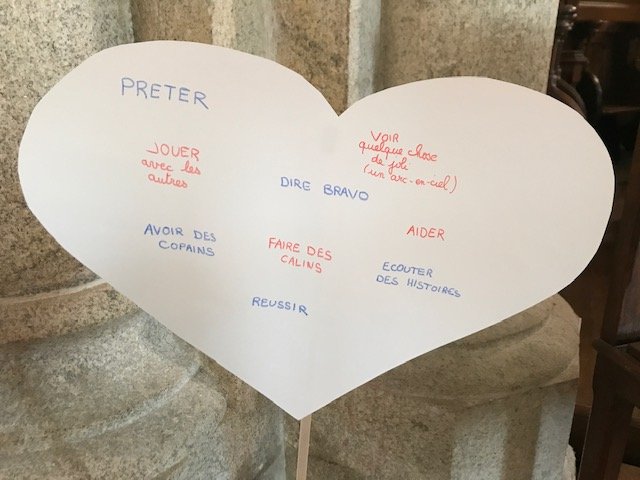 PRETER
JOUER
avec les
autres
VOIR
quelque chose
de joli
(un arc-en-ciel)
DIRE BRAVO
AVOIR DES
COPAINS
FAIRE DES
CALINS
AIDER
ECOUTER
DES HISTOIRES
REUSSIR